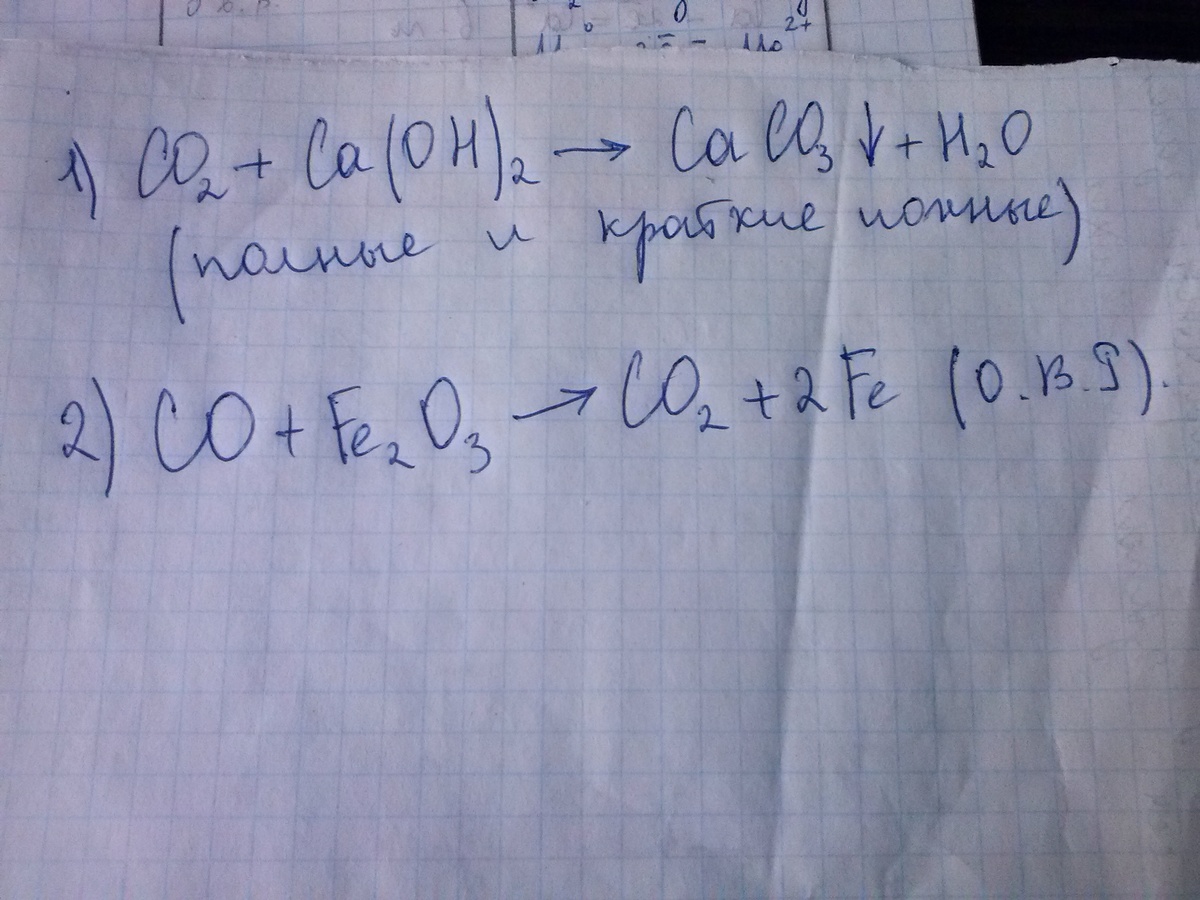 1) CO₂ + Ca(OH)₂ → CaCO₃↓ + H₂O
(полные и краткие ионные)
2) CO + Fe₂O₃ → CO₂ + 2Fe (О.В.Р).